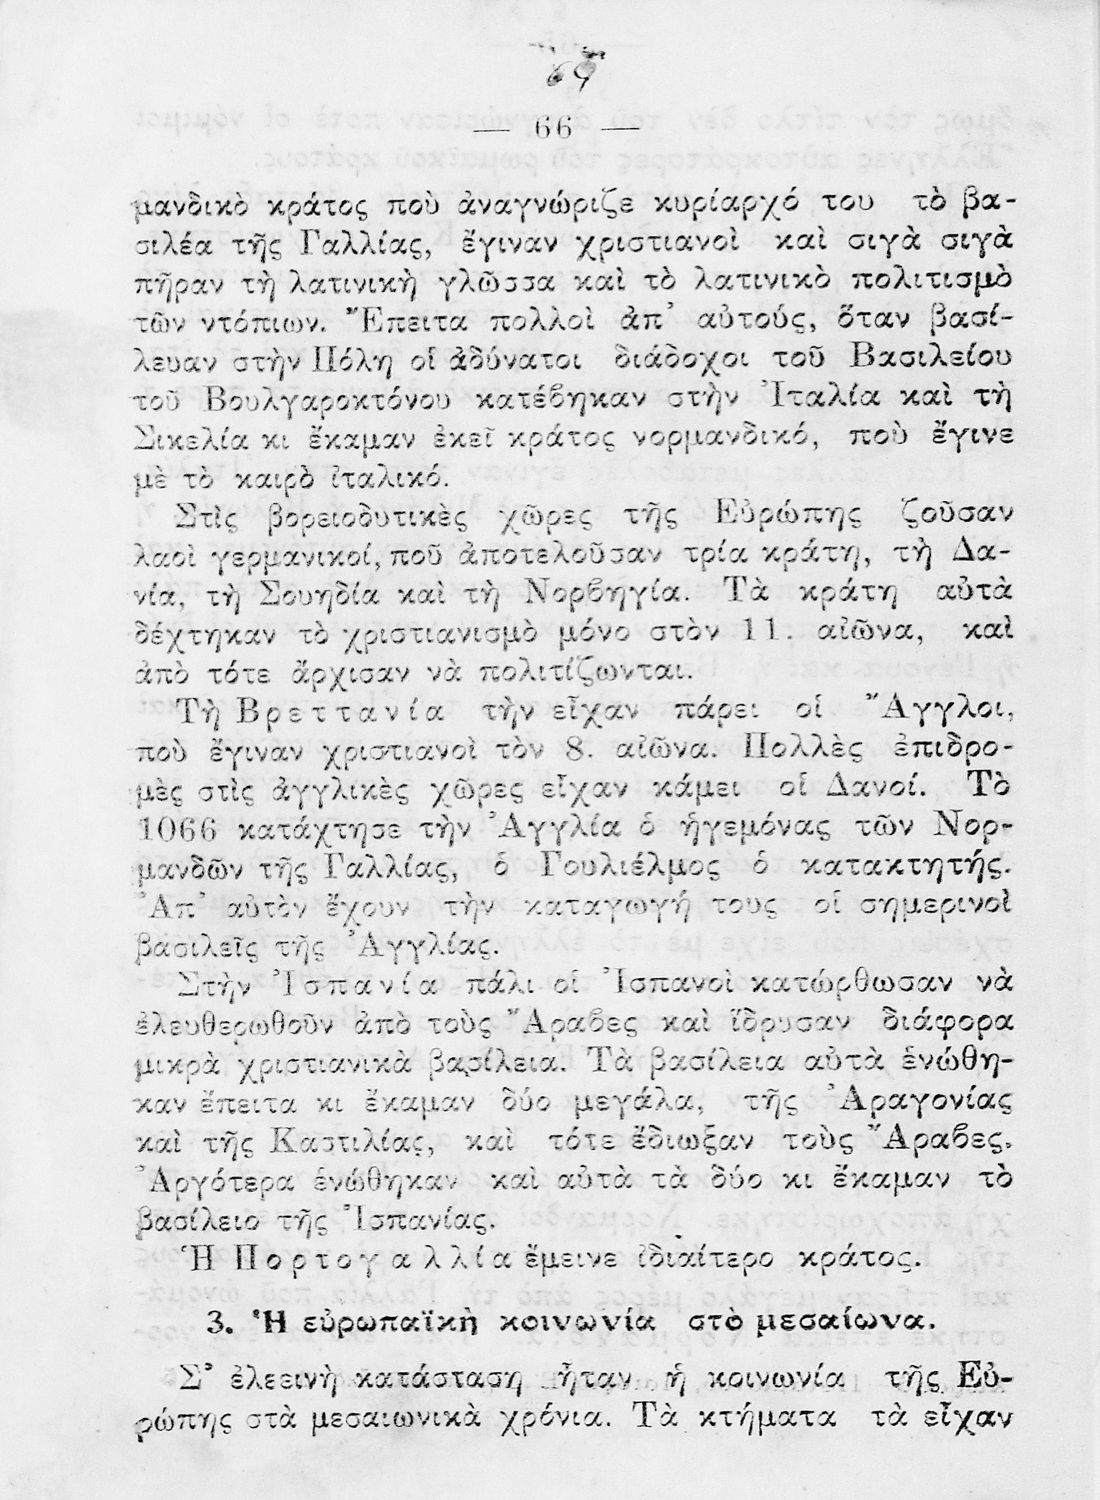 69
— 66 —
μανδικὸ κράτος ποὺ ἀναγνώριζε κυρίαρχό του τὸ βα-
σιλέα τῆς Γαλλίας, ἔγιναν χριστιανοὶ καὶ σιγὰ σιγὰ
πῆραν τὴ λατινικὴ γλῶσσα καὶ τὸ λατινικὸ πολιτισμὸ
τῶν ντόπιων. Ἔπειτα πολλοὶ ἀπ’ αὐτούς, ὅταν βασί-
λευαν στὴν Πόλη οἱ ἀδύνατοι διάδοχοι τοῦ Βασιλείου
τοῦ Βουλγαροκτόνου κατέβηκαν στὴν Ἰταλία καὶ τὴ
Σικελία κι ἔκαμαν ἐκεῖ κράτος νορμανδικό, ποὺ ἔγινε
μὲ τὸ καιρὸ ἰταλικό.
Στὶς βορειοδυτικὲς χῶρες τῆς Εὐρώπης ζοῦσαν
λαοὶ γερμανικοί, ποῦ ἀποτελοῦσαν τρία κράτη, τὴ Δα-
νία, τὴ Σουηδία καὶ τὴ Νορβηγία. Τὰ κράτη αὐτὰ
δέχτηκαν τὸ χριστιανισμὸ μόνο στὸν 11. αἰῶνα, καὶ
ἀπὸ τότε ἄρχισαν νὰ πολιτίζωνται.
Τὴ Βρεττανία τὴν εἶχαν πάρει οἱ Ἄγγλοι,
ποὺ ἔγιναν χριστιανοὶ τὸν 8. αἰῶνα. Πολλὲς ἐπιδρο-
μὲς στὶς ἀγγλικὲς χῶρες εἶχαν κάμει οἱ Δανοί. Τὸ
1066 κατάχτησε τὴν Ἀγγλία ὁ ἡγεμόνας τῶν Νορ-
μανδῶν τῆς Γαλλίας, ὁ Γουλιέλμος ὁ κατακτητής.
Ἀπ’ αὐτὸν ἔχουν τὴν καταγωγή τους οἱ σημερινοὶ
βασιλεῖς τῆς Ἀγγλίας.
Στὴν Ἰσπανία πάλι οἱ Ἰσπανοὶ κατώρθωσαν νὰ
ἐλευθερωθοῦν ἀπὸ τοὺς Ἄραβες καὶ ἵδρυσαν διάφορα
μικρὰ χριστιανικὰ βασίλεια. Τὰ βασίλεια αὐτὰ ἑνώθη-
καν ἔπειτα κι ἔκαμαν δύο μεγάλα, τῆς Ἀραγονίας
καὶ τῆς Καστιλίας, καὶ τότε ἔδιωξαν τοὺς Ἄραβες.
Ἀργότερα ἑνώθηκαν καὶ αὐτὰ τὰ δύο κι ἔκαμαν τὸ
βασίλειο τῆς Ἰσπανίας.
Ἡ Πορτογαλλία ἔμεινε ἰδιαίτερο κράτος.
3. Ἡ εὐρωπαϊκὴ κοινωνία στὸ μεσαίωνα.
Σ’ ἐλεεινὴ κατάσταση ἦταν ἡ κοινωνία τῆς Εὐ-
ρώπης στὰ μεσαιωνικὰ χρόνια. Τὰ κτήματα τὰ εἶχαν